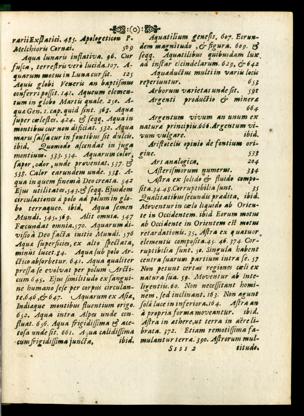 :(o):
varii Exstatici. 483. Apologeticon P.
Melchioris Cornæi. 509
Aqua lunaris instativa. 96. Cur
fusca, terrestris verò lucida. 107. A-
quarum motus in Luna cur sit. 125
Aqua globi Veneris an baptismo
conferri possit. 141. Aqueum elemen-
tum in globo Martis quale. 230. A-
quæ Gen. 1. cap. quid sint. 365. Aqua
super cælestes. 424. & seqq. Aqua in
montibus cur non deficiat. 532. Aqua
maris salsa cur in fontibus sit dulcis.
ibid. Quomodo ascendat in juga
montium. 533. 534. Aquarum calor,
sapor, odor, unde proveniat. 537. &
538. Calor earundem unde. 538. A-
qua in quem finem à Deo creata. 542
Ejus utilitates. 543. & seqq. Ejusdem
circulatio ex à polo ad polum in glo-
bo terraqueo. ibid. Aqua semen
Mundi. 545. 569. Alit omnia. 547
Fœcundat omnia. 570. Aquarum di-
visio à Deo facta initio Mundi. 576
Aqua superficies, ex alto spectata,
minùs lucet. 94. Aqua sub polo Ar-
ctico absorbetur. 641. Aqua qualiter
pressa se evolvat per polum Arcti-
cum 645. Ejus similitudo cum sangui-
ne humano sese per corpus circulan-
te. 646. & 647. Aquarum ex Asiæ,
Indiaque montibus fluentium origo.
652. Aqua intra Alpes unde con-
fluat. 656. Aqua frigidissima & ace-
tosa unde sit. 661. Aqua calidissima
cum frigidissima juncta, ibid.
Aquatilium genesis, 607. Eorun-
dem magnitudo, & figura. 609. &
seqq. Aquatilibus quibusdam lux
ad instar cicindelarum. 629. & 642
Aquæductus multi in variis locis
reperiuntur. 653
Arborum varietas unde sit. 591
Argenti productio & minera
664
Argentum vivum an unum ex
naturæ principiis 666. Argentum vi-
vum vulgare. ibid.
Aristotelis opinio de fontium ori-
gine. 528
Ars analogica. 204
Asterismorum numerus. 394
Astra ex solida & fluida compo-
sita. 34. 45. Corruptibilia sunt. 35
Qualitatibus secundis prædita, ibid.
Moventur in cælo liquido ab Orien-
te in Occidentem. ibid. Eorum motus
ab Occidente in Orientem est motus
retardationis. 35. Astra ex quatuor
elementis composita. 45. 46. 374. Cor-
ruptibilia sunt. 52. Singula habent
centra suarum partium intra se. 57
Non petunt certas regiones cæli ex
natura sua. 59. Moventur ab Inte-
ligentiis. 60. Non necessitant homi-
nem, sed inclinant. 163. Non à quo
sole lucem in inferiora. 164. Astra an
à propria forma moveantur. ibid.
Astra in æthere, ut terra in aëre li-
brata. 372. Etiam remotissima fa-
mulantur terræ. 390. Astrorum mul-
Ssss 2 titudo.